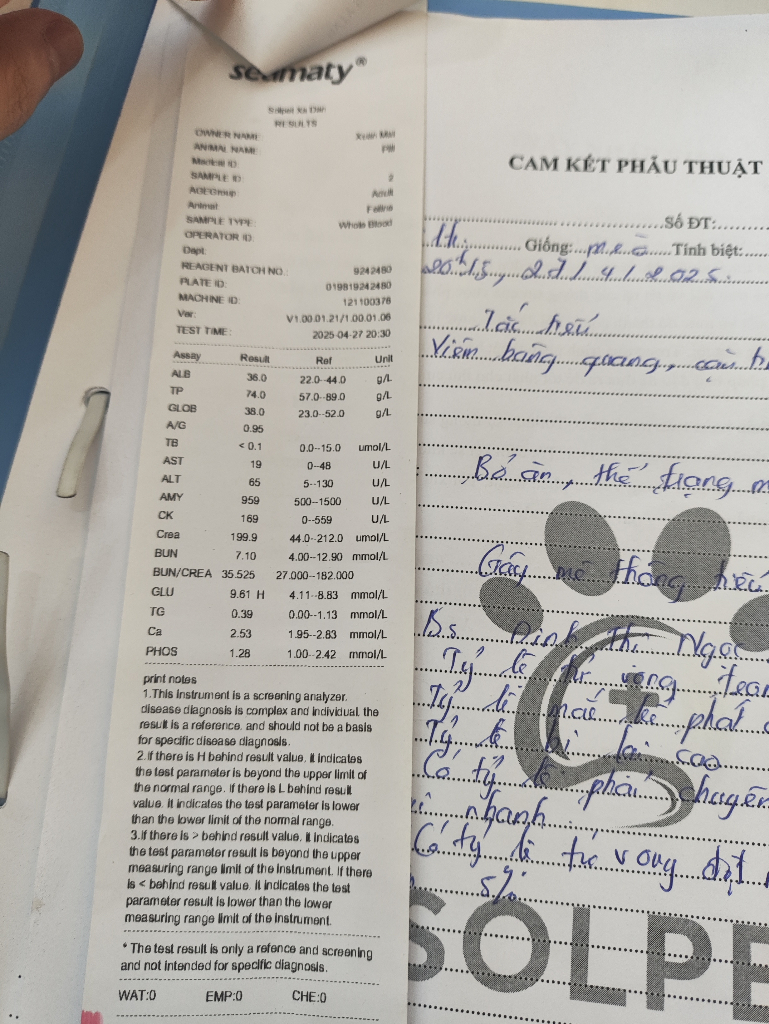 seamaty®
RESULTS
OWNER NAME: Xuan Mai
ANIMAL NAME:
Medical ID:
SAMPLE ID: 2
AGEGroup Adult
Animal Feline
SAMPLE TYPE: Whole Blood
OPERATOR ID:
Dept:
REAGENT BATCH NO.: 9242480
PLATE ID: 019819242480
MACHINE ID: 121100376
Ver: V1.00.01.21/1.00.01.06
TEST TIME: 2025-04-27 20:30
Assay Result Ref Unit
ALB 36.0 22.0--44.0 g/L
TP 74.0 57.0--89.0 g/L
GLOB 38.0 23.0--52.0 g/L
A/G 0.95
TB < 0.1 0.0--15.0 umol/L
AST 19 0--48 U/L
ALT 65 5--130 U/L
AMY 959 500--1500 U/L
CK 169 0--559 U/L
Crea 199.9 44.0--212.0 umol/L
BUN 7.10 4.00--12.90 mmol/L
BUN/CREA 35.525 27.000--182.000
GLU 9.61 H 4.11--8.83 mmol/L
TG 0.39 0.00--1.13 mmol/L
Ca 2.53 1.95--2.83 mmol/L
PHOS 1.28 1.00--2.42 mmol/L
print notes
1.This instrument is a screening analyzer.
disease diagnosis is complex and individual. the
result is a reference. and should not be a basis
for specific disease diagnosis.
2.If there is H behind result value. it indicates
the test parameter is beyond the upper limit of
the normal range. If there is L behind result
value. It indicates the test parameter is lower
than the lower limit of the normal range.
3.If there is > behind result value. it indicates
the test parameter result is beyond the upper
measuring range limit of the instrument. If there
is < behind result value. it indicates the test
parameter result is lower than the lower
measuring range limit of the instrument.
* The test result is only a refence and screening
and not intended for specific diagnosis.
WAT:0 EMP:0 CHE:0
CAM KẾT PHẪU THUẬT
Số ĐT:
Giống: mèo Tính biệt:
20h15, 27/4/2025
Tắc tiểu
Viêm bàng quang, cặn
Bỏ ăn, thể trạng
Gây mê thông tiểu
Bs Đinh Thị Ngọc
Tỷ lệ tử vong
Tỷ lệ mắc kế phát
Tỷ lệ bị lại cao
Có tỷ lệ phải chuyển
nhanh
Có tỷ lệ tử vong đột
5%
SOLPE